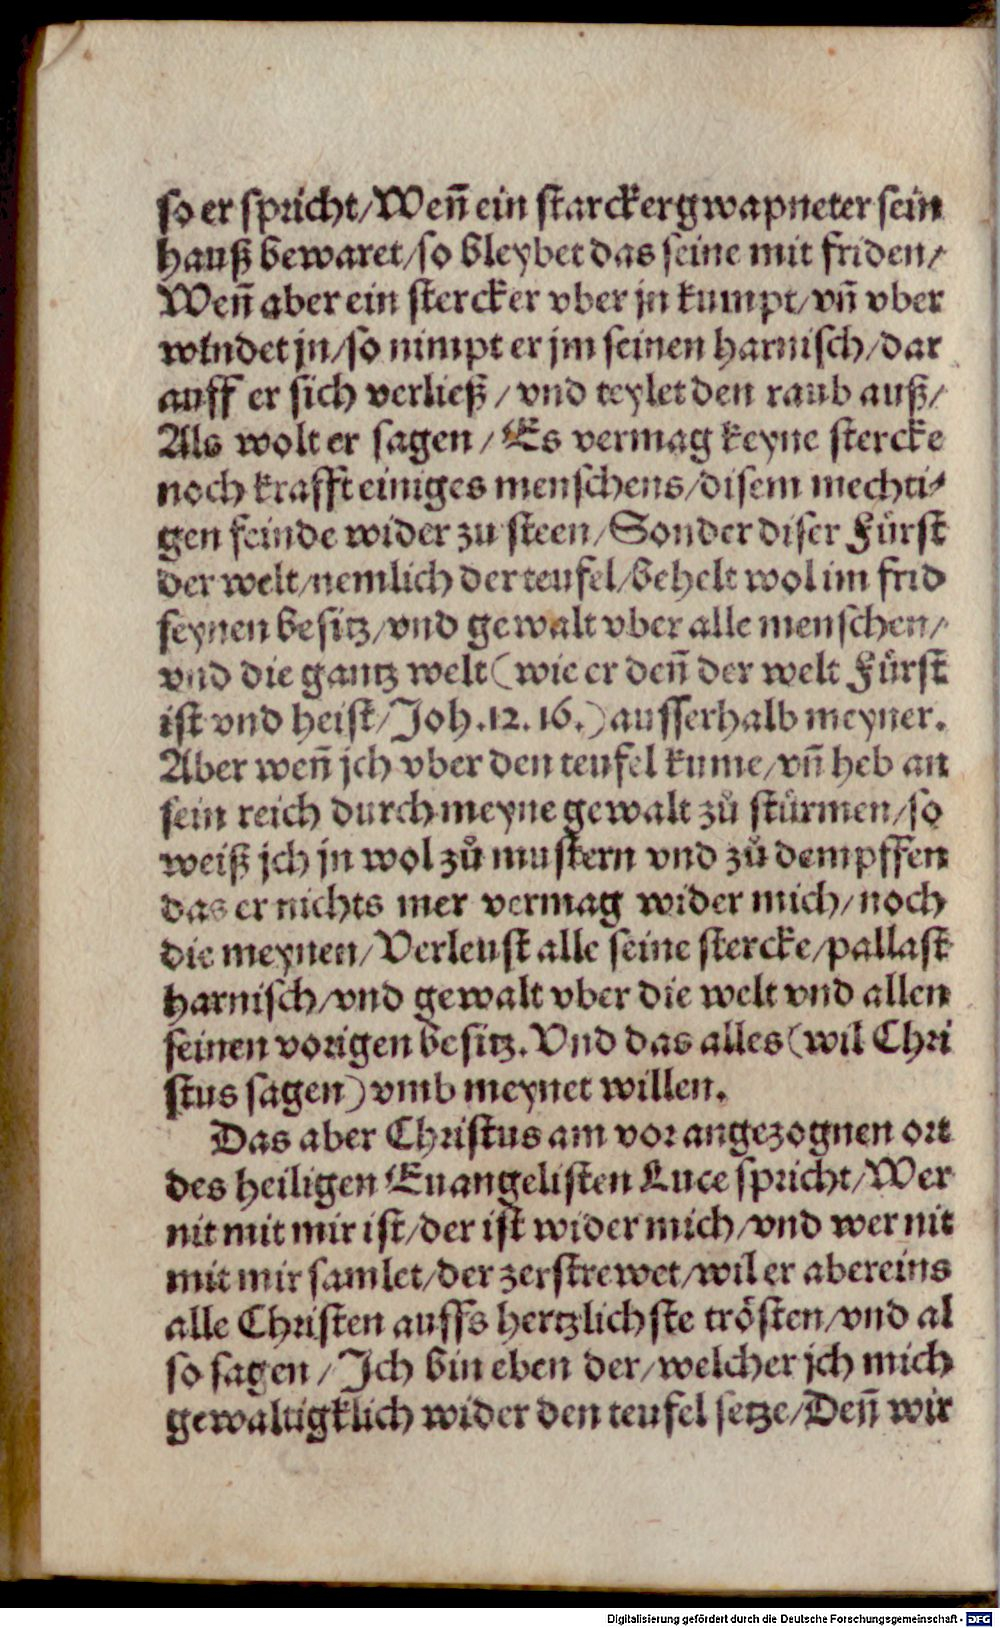 so er spricht/Weñ ein starcker gwapneter sein
hauß bewaret/so bleybet das seine mit friden/
Weñ aber ein stercker vber jn kumpt/vñ vber
windet jn/so nimpt er jm seinen harnisch/dar
auff er sich verließ/vnd teylet den raub auß/
Als wolt er sagen/Es vermag keyne stercke
noch krafft einiges menschens/disem mechti⸗
gen feinde wider zu steen/Sonder diser Fürst
der welt/nemlich der teufel/behelt wol im frid
seynen besitz/vnd gewalt vber alle menschen/
vnd die gantz welt(wie er deñ der welt Fürst
ist vnd heist/Joh.12.16.)ausserhalb meyner.
Aber weñ jch vber den teufel kume/vñ heb an
sein reich durch meyne gewalt zů stürmen/so
weiß jch jn wol zů mustern vnd zů dempffen
das er nichts mer vermag wider mich/noch
die meynen/Verleust alle seine stercke/pallast
harnisch/vnd gewalt vber die welt vnd allen
seinen vorigen besitz.Vnd das alles(wil Chri
stus sagen)vmb meynet willen.
Das aber Christus am vor angezognen ort
des heiligen Euangelisten Luce spricht/Wer
nit mit mir ist/der ist wider mich/vnd wer nit
mit mir samlet/der zerstrewet/wil er abereins
alle Christen auffs hertzlichste trösten/vnd al
so sagen/Ich bin eben der/welcher jch mich
gewaltigklich wider den teufel setze/Deñ wir
Digitalisierung gefördert durch die Deutsche Forschungsgemeinschaft - DFG